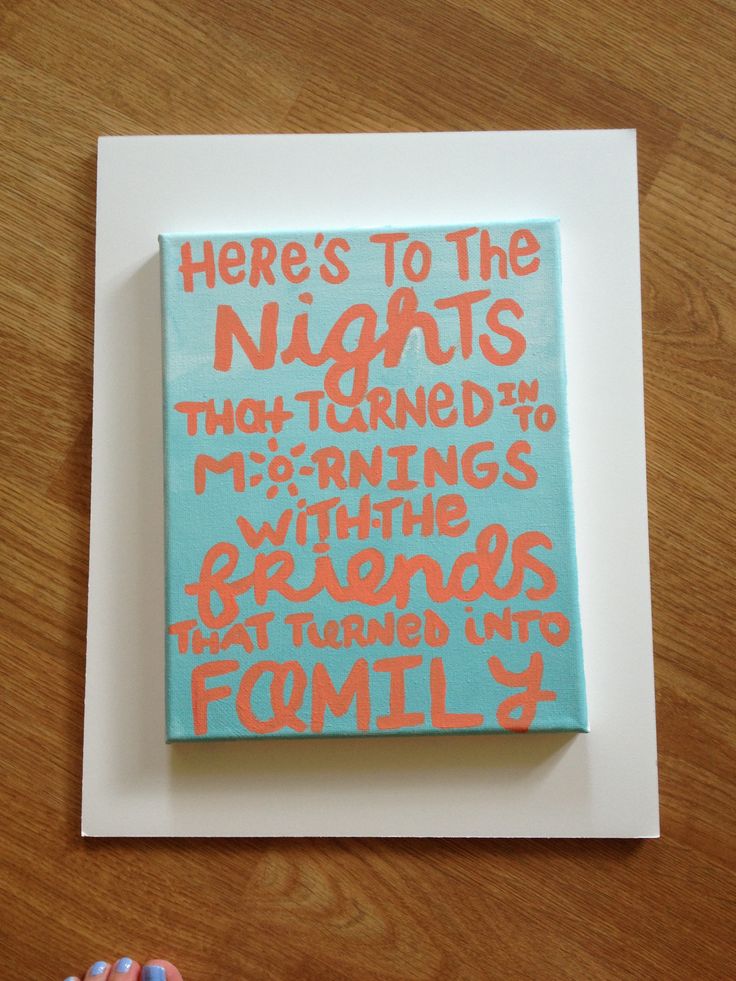 HERE'S TO THE
NIGHTS
THAT TURNED INTO
MORNINGS
WITH THE
friends
THAT TURNED INTO
FAMILY